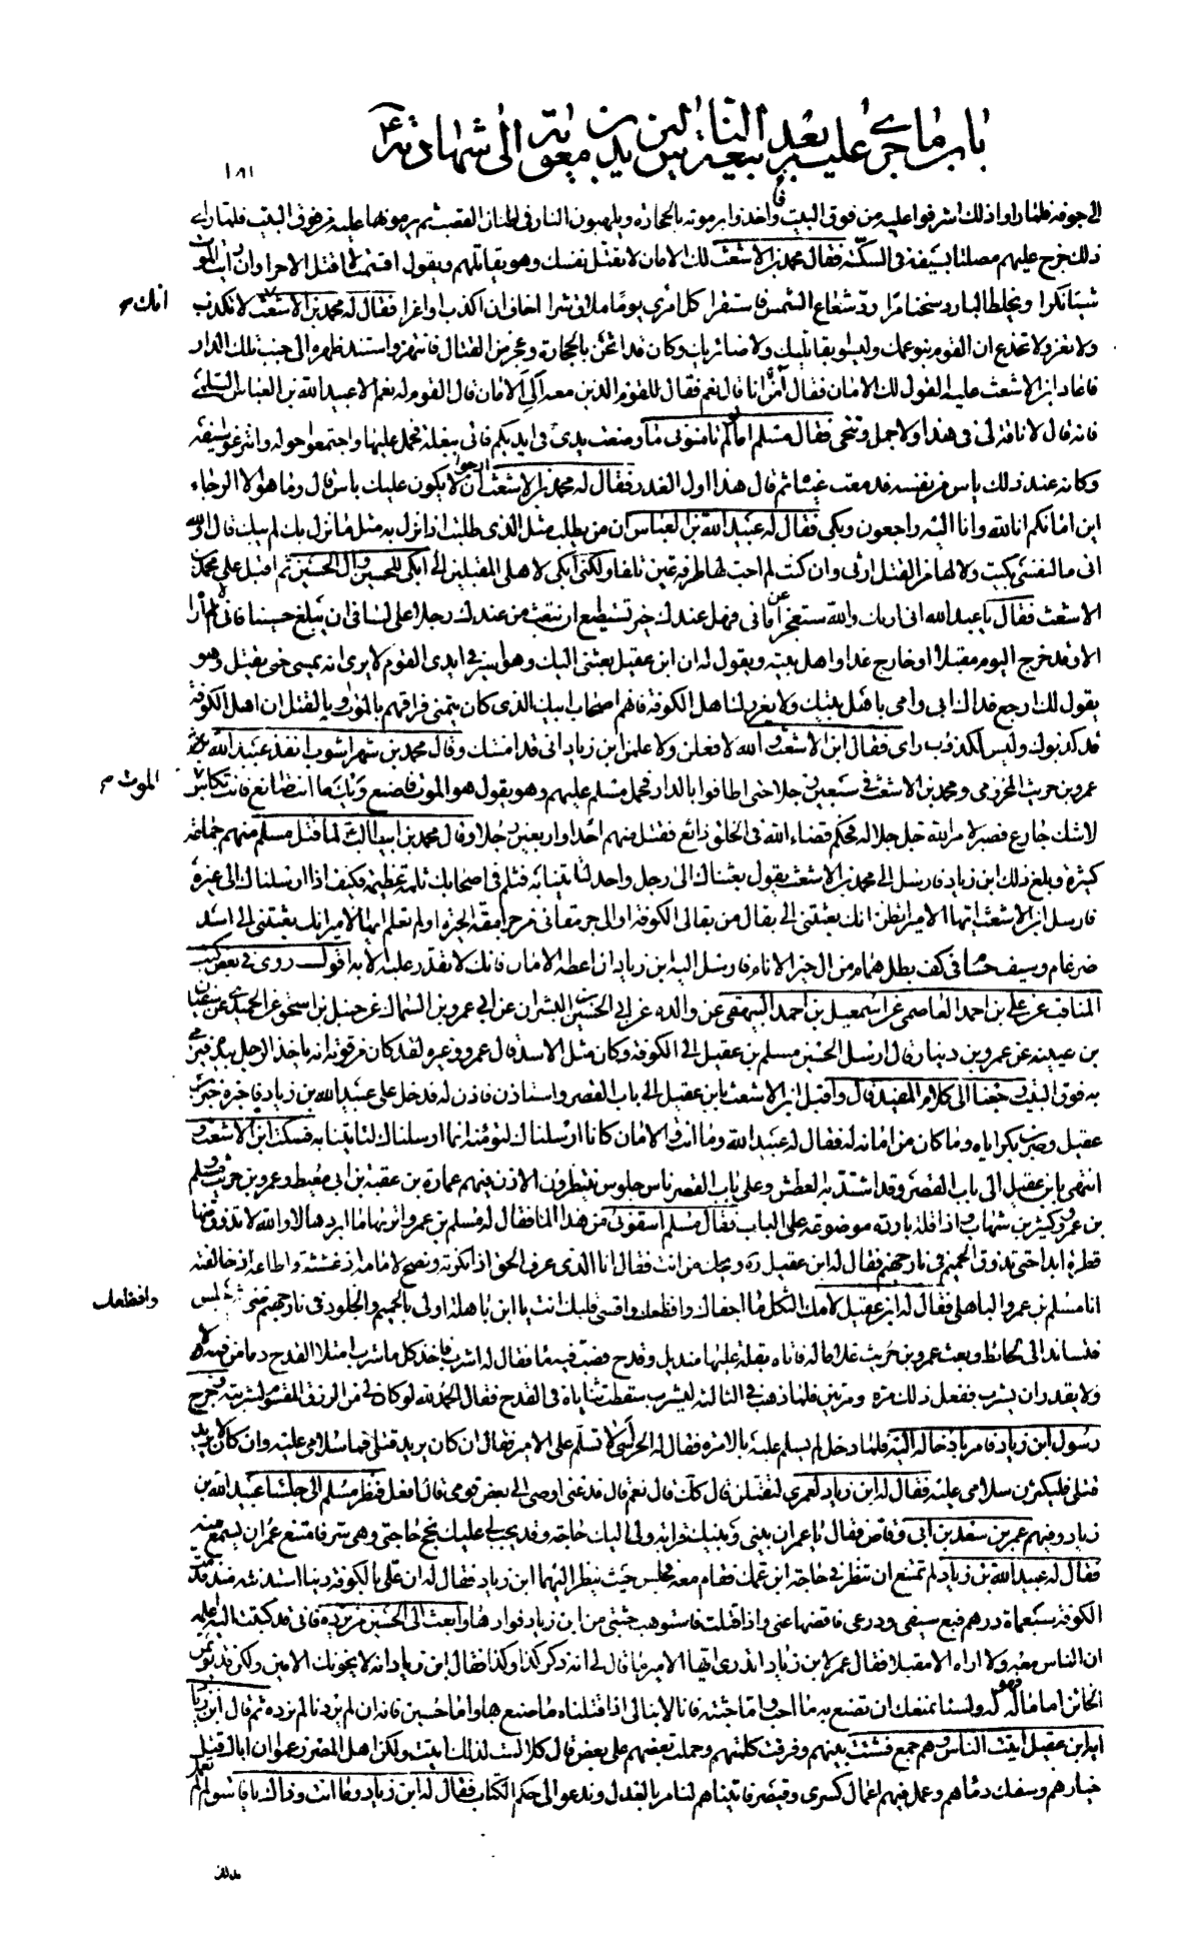 باب ما جرى عليه بعد بيعة الناس ليزيد بن معوية الى شهادته
١٨١
الى جوفه فلما راوا ذلك اشرفوا عليه من فوق البيت واخذوا يرمونه بالحجارة ويلهبون النار فى اطنان القصب ثم يرمونها عليه من فوق البيت فلما راى
ذلك خرج عليهم مصلتا بسيفه فى السكة فقال محمد بن الاشعث لك الامان لا تقتل نفسك وهو يقاتلهم ويقول اقسمت لا اقتل الا حرا وان رايت الموت
شيئا نكرا ويخلط البارد سخنا مرا رد شعاع الشمس فاستقرا كل امرئ يوما ملاق شرا اخاف ان اكذب او اغرا فقال له محمد بن الاشعث لا تكذب
انك
ولا تغر ولا تخدع ان القوم بنو عمك وليسوا بقاتليك ولا ضائريك وكان قد اثخن بالحجارة وعجز عن القتال فانتهز واستند ظهره الى جنب تلك الدار
فاعاد ابن الاشعث عليه القول لك الامان فقال آمن انا قال نعم فقال للقوم الذين معه الى الامان قال القوم له نعم الا عبيد الله بن العباس السلمى
فانه قال لا ناقة لى فى هذا ولا جمل وتنحى فقال مسلم اما لو لم تامنونى ما وضعت يدى فى ايديكم فاتى ببغلة فحمل عليها واجتمعوا حوله وانتزعوا سيفه
وكانه عند ذلك يأس من نفسه فدمعت عيناه ثم قال هذا اول الغدر فقال له محمد بن الاشعث ارجو ان لا يكون عليك باس قال وما هو الا الرجاء
اين امانكم انا لله وانا اليه راجعون وبكى فقال له عبيد الله بن العباس ان من يطلب مثل الذى طلبت اذا نزل به مثل ما نزل بك لم يبك قال والله
انى ما لنفسى بكيت ولا لها من القتل ارثى وان كنت لم احب لها طرفة عين تلفا ولكنى ابكى لاهلى المقبلين الى ابكى للحسين وآل الحسين ثم اقبل على محمد بن
الاشعث فقال يا عبد الله انى اراك والله ستعجز عن امانى فهل عندك خير تستطيع ان تبعث من عندك رجلا على لسانى ان يبلغ حسينا فانى لا اراه
الا وقد خرج اليوم مقبلا او خارج غدا واهل بيته ويقول له ان ابن عقيل بعثنى اليك وهو اسير فى ايدى القوم لا يرى انه يمسى حتى يقتل وهو
يقول لك ارجع فداك ابى وامى باهل بيتك ولا يغررك اهل الكوفة فانهم اصحاب ابيك الذى كان يتمنى فراقهم بالموت او بالقتل ان اهل الكوفة
قد كذبوك وليس لكذوب راى فقال ابن الاشعث والله لافعلن ولاعلمن ابن زياد انى قد امنتك وقال محمد بن شهراشوب انفذ عبيد الله
عمرو بن حريث المخزومى ومحمد بن الاشعث فى سبعين رجلا حتى اطافوا بالدار فحمل مسلم عليهم وهو يقول هو الموت فاصنع ويك ما انت صانع فانت بكاس
الموت
لا شك جارع فصبرا لامر الله جل جلاله فحكم قضاء الله فى الخلق ذائع فقتل منهم احدا واربعين رجلا وقال محمد بن ابيطالب لما قتل مسلم منهم جماعة
كثيرة وبلغ ذلك ابن زياد فارسل الى محمد بن الاشعث يقول بعثناك الى رجل واحد لتاتينا به فثلم فى اصحابك ثلمة عظيمة فكيف اذا ارسلناك الى غيره
فارسل ابن الاشعث ايها الامير اتظن انك بعثتنى الى بقال من بقالى الكوفة او الى جرمقانى من جرامقة الحيرة اولم تعلم ايها الامير انك بعثتنى الى اسد
ضرغام وسيف حسام فى كف بطل همام من آل خير الانام فارسل اليه ابن زياد ان اعطه الامان فانك لا تقدر عليه الا به اقول روى فى بعض كتب
المناقب عن على بن احمد العاصمى عن اسمعيل بن احمد البيهقى عن والده عن ابى الحسين بن البشران عن ابى عمرو بن السماك عن حنبل بن اسحق عن الحميدى عن سفيان
بن عيينه عن عمرو بن دينار قال ارسل الحسين مسلم بن عقيل الى الكوفة وكان مثل الاسد قال عمرو وغيره لقد كان من قوته انه ياخذ الرجل بيده فيرمى
به فوق البيت رجعنا الى كلام المفيد قال واقبل ابن الاشعث بابن عقيل الى باب القصر واستاذن فاذن له فدخل على عبيد الله بن زياد فاخبره خبر ابن
عقيل وضرب بكر اياه وما كان من امانه له فقال له عبيد الله وما انت والامان كانا ارسلناك لتؤمنه انما ارسلناك لتاتينا به فسكت ابن الاشعث و
انتهى بابن عقيل الى باب القصر وقد اشتد به العطش وعلى باب القصر ناس جلوس ينتظرون الاذن فيهم عمارة بن عقبة بن ابى معيط وعمرو بن حريث ومسلم
بن عمرو وكثير بن شهاب واذا قلة باردة موضوعة على الباب فقال مسلم اسقونى من هذا الماء فقال له مسلم بن عمرو اتراها ما ابردها لا والله لا تذوق منها
قطرة ابدا حتى تذوق الحميم فى نار جهنم فقال له ابن عقيل ره ويحك من انت فقال انا الذى عرف الحق اذ انكرته ونصح لامامه اذ غششته واطاعه اذ خالفته
انا مسلم بن عمرو الباهلى فقال له ابن عقيل لامك الثكل ما اجفاك وافظعك واقسى قلبك انت يا ابن باهلة اولى بالحميم والخلود فى نار جهنم منى ثم جلس
وافظعك
فتساند الى حائط وبعث عمرو بن حريث غلاما له فاتاه بقلة عليها منديل وقدح فصب فيه ماء فقال له اشرب فاخذ كل ما شرب امتلا القدح دما من فمه
ولا يقدر ان يشرب ففعل ذلك مرة ومرتين فلما ذهب فى الثالثة ليشرب سقطت ثناياه فى القدح فقال الحمد لله لو كان لى من الرزق المقسوم لشربته وخرج
رسول ابن زياد فامر بادخاله اليه فلما دخل لم يسلم عليه بالامرة فقال له الحرسى الا تسلم على الامير فقال ان كان يريد قتلى فما سلامى عليه وان كان لا يريد
قتلى فليكثرن سلامى عليه فقال له ابن زياد لعمرى لتقتلن قال كذلك قال نعم قال فدعنى اوصى الى بعض قومى قال افعل فنظر مسلم الى جلساء عبيد الله بن
زياد وفيهم عمر بن سعد بن ابى وقاص فقال يا عمر ان بينى وبينك قرابة ولى اليك حاجة وقد يجب لى عليك نجح حاجتى وهى سر فامتنع عمر ان يسمع منه
فقال له عبيد الله بن زياد لم تمتنع ان تنظر فى حاجة ابن عمك فقام معه فجلس حيث ينظر اليهما ابن زياد فقال له ان على بالكوفة دينا استدنته منذ قدمت
الكوفة سبعمائة درهم فبع سيفى ودرعى فاقضها عنى واذا قتلت فاستوهب جثتى من ابن زياد فوارها وابعث الى الحسين من يرده فانى قد كتبت اليه اعلمه
ان الناس معه ولا اراه الا مقبلا فقال عمر لابن زياد اتدرى ايها الامير ما قال لى انه ذكر كذا وكذا فقال ابن زياد انه لا يخونك الامين ولكن قد يؤتمن
الخائن اما ماله فهو له ولسنا نمنعك ان تصنع به ما احب واما جثته فانا لا نبالى اذا قتلناه ما صنع بها واما حسين فانه ان لم يردنا لم نرده ثم قال ابن زياد
ايه ابن عقيل اتيت الناس وهم جمع فشتت بينهم وفرقت كلمتهم وحملت بعضهم على بعض قال كلا لست لذلك اتيت ولكن اهل المصر زعموا ان اباك قتل
خيارهم وسفك دماءهم وعمل فيهم اعمال كسرى وقيصر فاتيناهم لنامر بالعدل وندعو الى حكم الكتاب فقال له ابن زياد وما انت وذاك يا فاسق لم لم تعمل